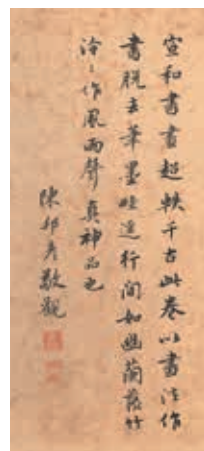 宣和書畫超軼千古此卷以書法作
畫脫去筆墨畦逕行間如幽蘭叢竹
泠泠作風雨聲真神品也
陳邦彥敬觀